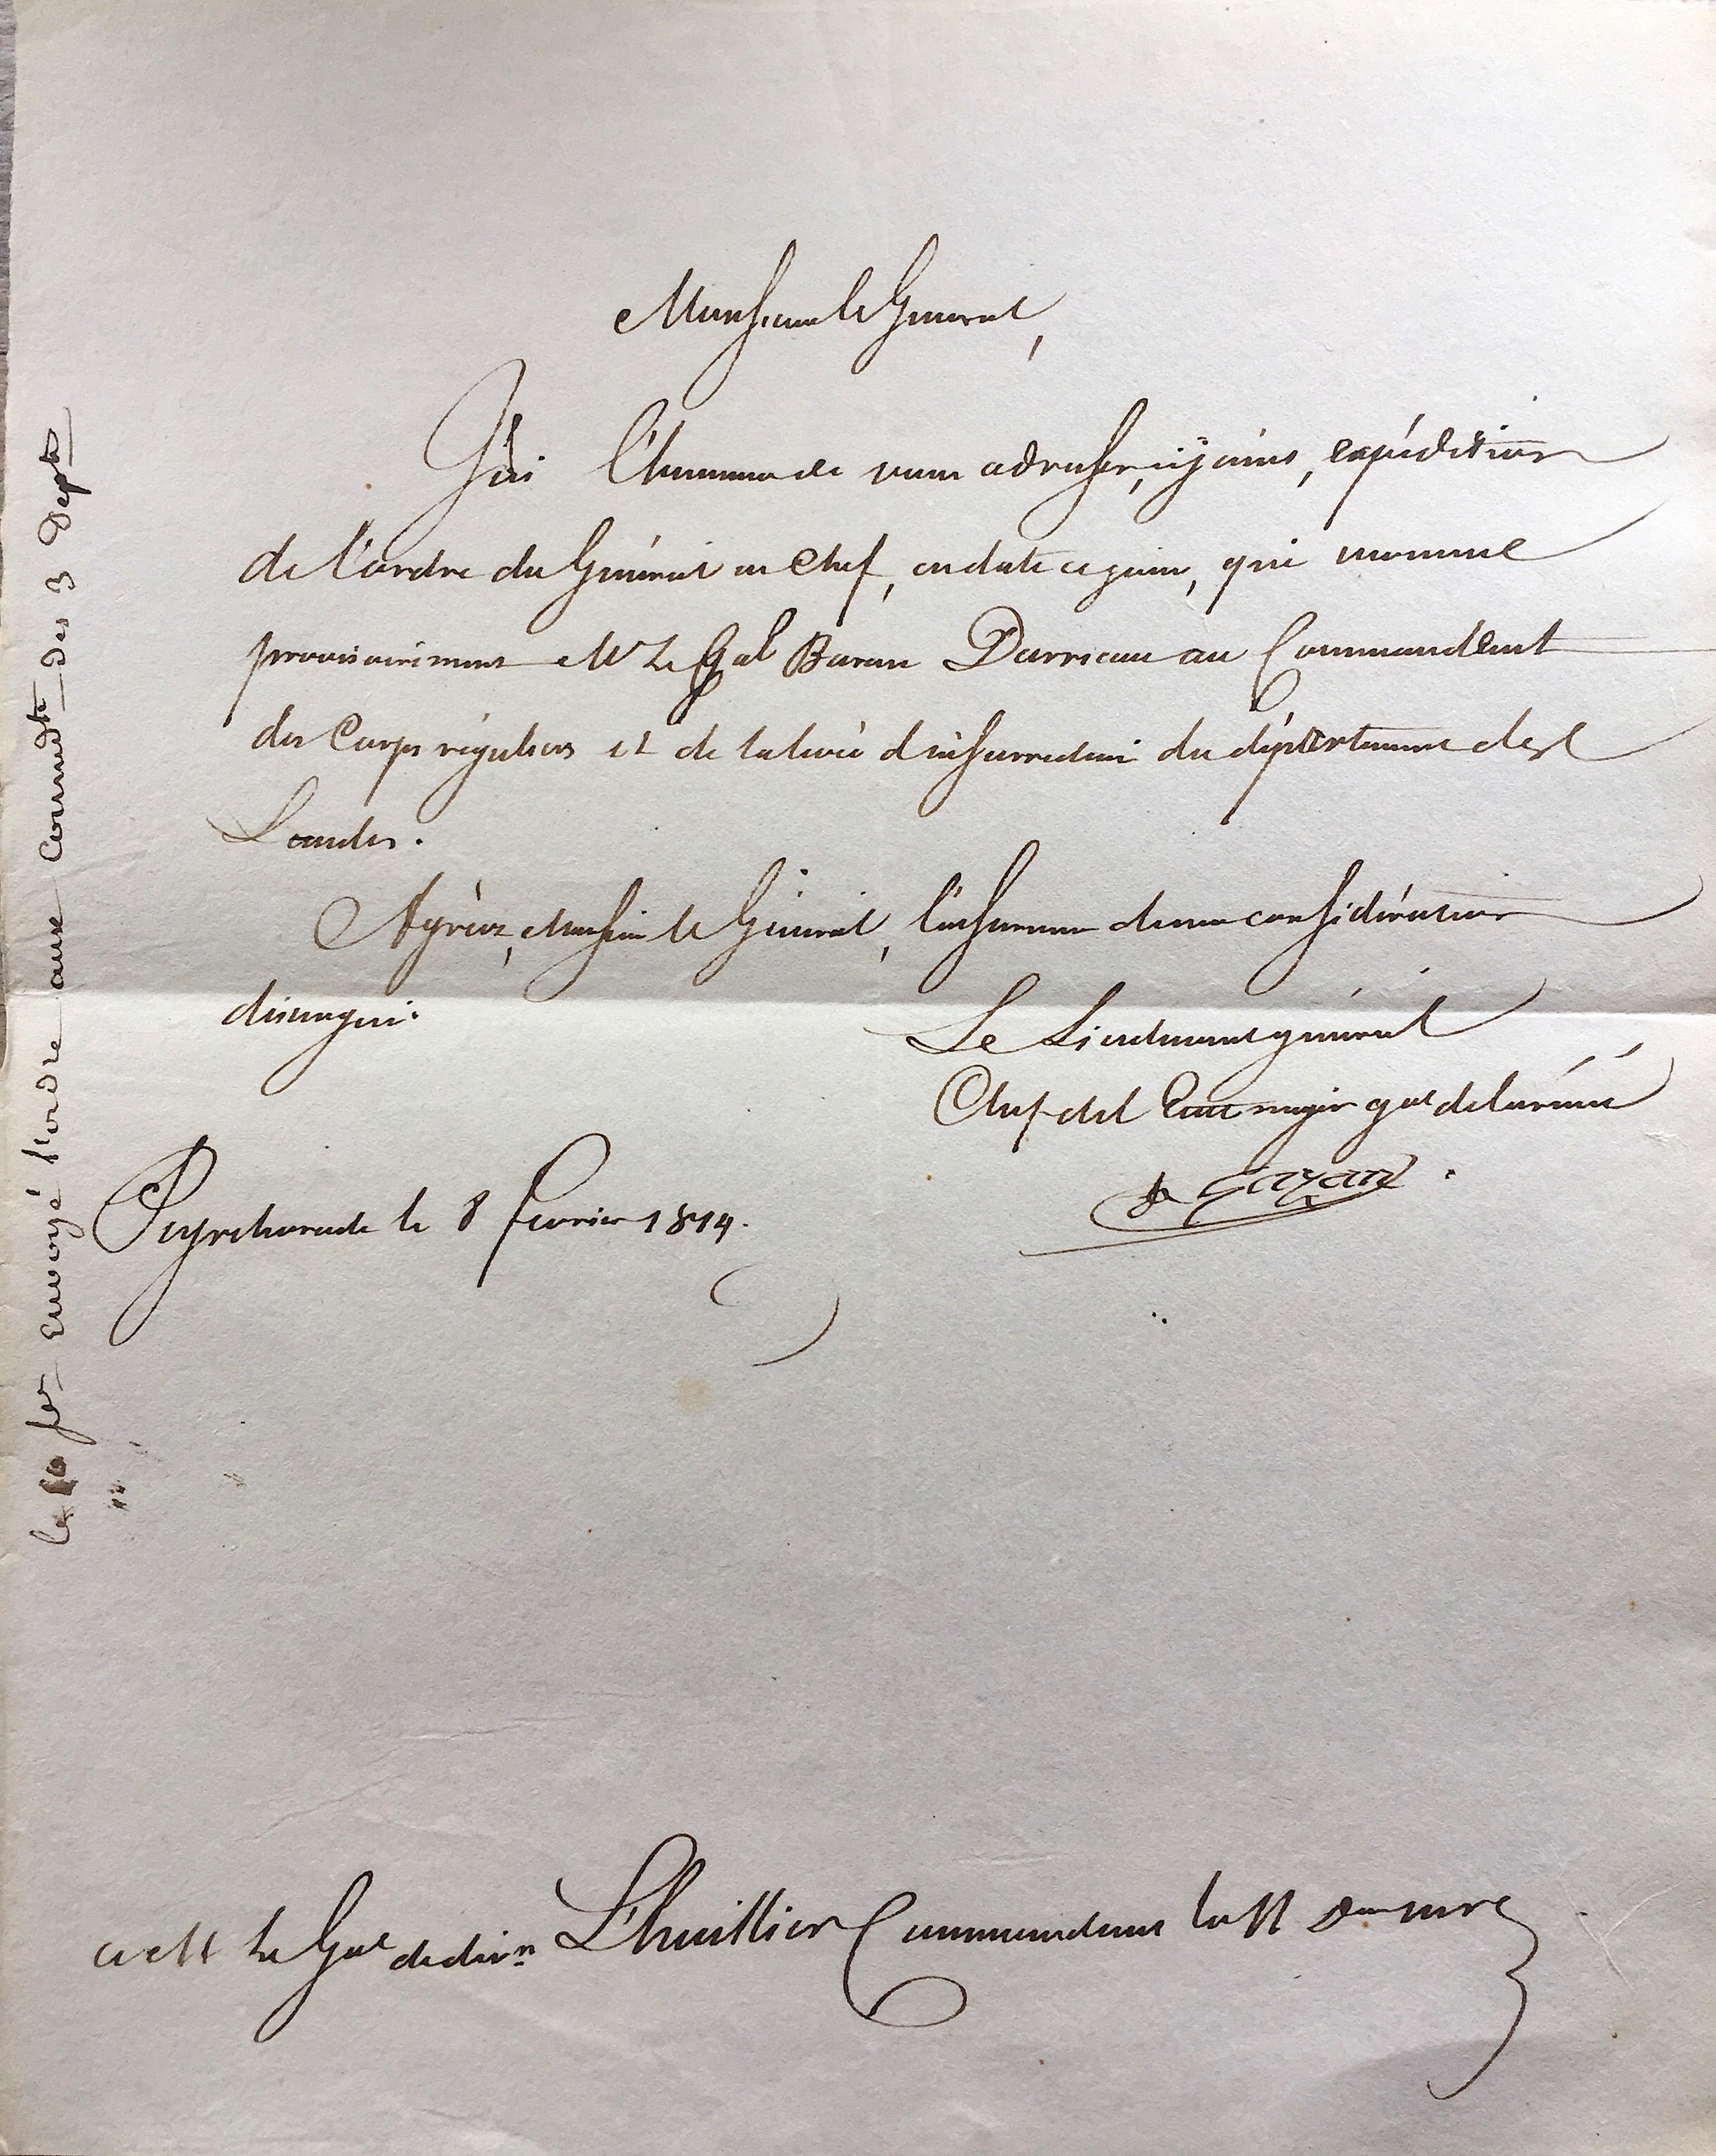 Monsieur le Général,
J'ai l'honneur de vous adresser, ci joint, expédition
de l'ordre du Général en Chef, en date ce jour, qui nomme
provisoirement Mr Le Gal Baron Darricau au Commandemt
des Corps réguliers et de la levée d'insurrection du département des
Landes.
Agréez, Monsieur le Général, l'assurance de ma considération
distinguée.
Le Lieutenant général
Chef del Etat major gal de larmée
Gazan
Peyrehorade le 8 fevrier 1814.
a M Le Gal de divn L'huillier Commandant la 11 me
le 10 fer Envoyé l'ordre aux Commdts des 3 Depts